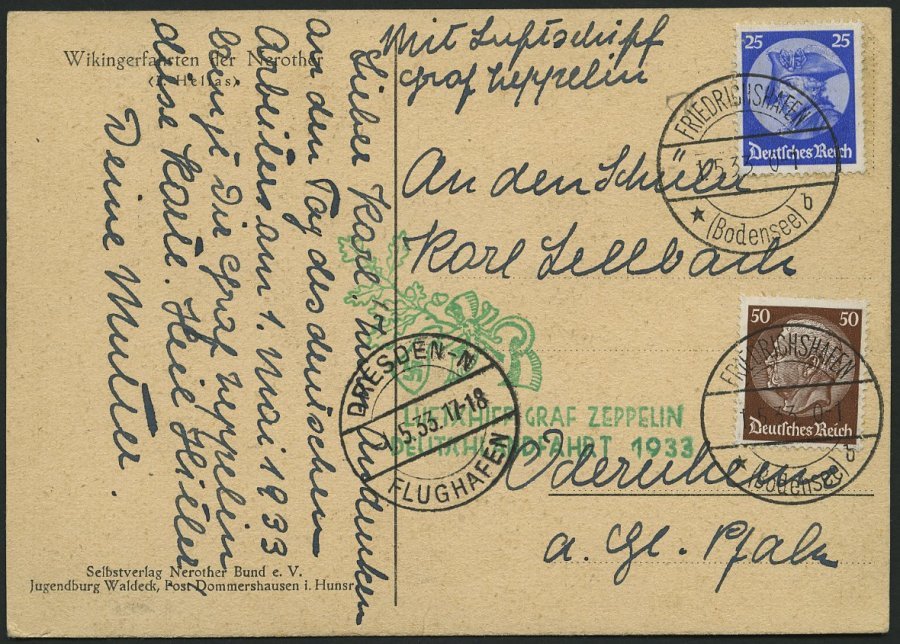 Wikingerfahrten der Nerother
(Hellas)
Lieber Karl. Zum Andenken
an den Tag des deutschen
Arbeiters am 1. Mai 1933
bringt Dir Graf Zeppelin
diese Karte. Heil Hitler
Deine Mutter.
Selbstverlag Nerother Bund e. V.
Jugendburg Waldeck, Post Dommershausen i. Hunsr.
Mit Luftschiff
Graf Zeppelin
An den Schüler
Karl Sellbach
Odernheim
a. Gl. Pfalz
25 25
Deutsches Reich
FRIEDRICHSHAFEN
1.5.33. 0-1
★ (Bodensee) b
50 50
Deutsches Reich
FRIEDRICHSHAFEN
1.5.33. 0-1
★ (Bodensee) b
LUFTSCHIFF GRAF ZEPPELIN
DEUTSCHLANDFAHRT 1933
DRESDEN-N
1.5.33.17-18
FLUGHAFEN